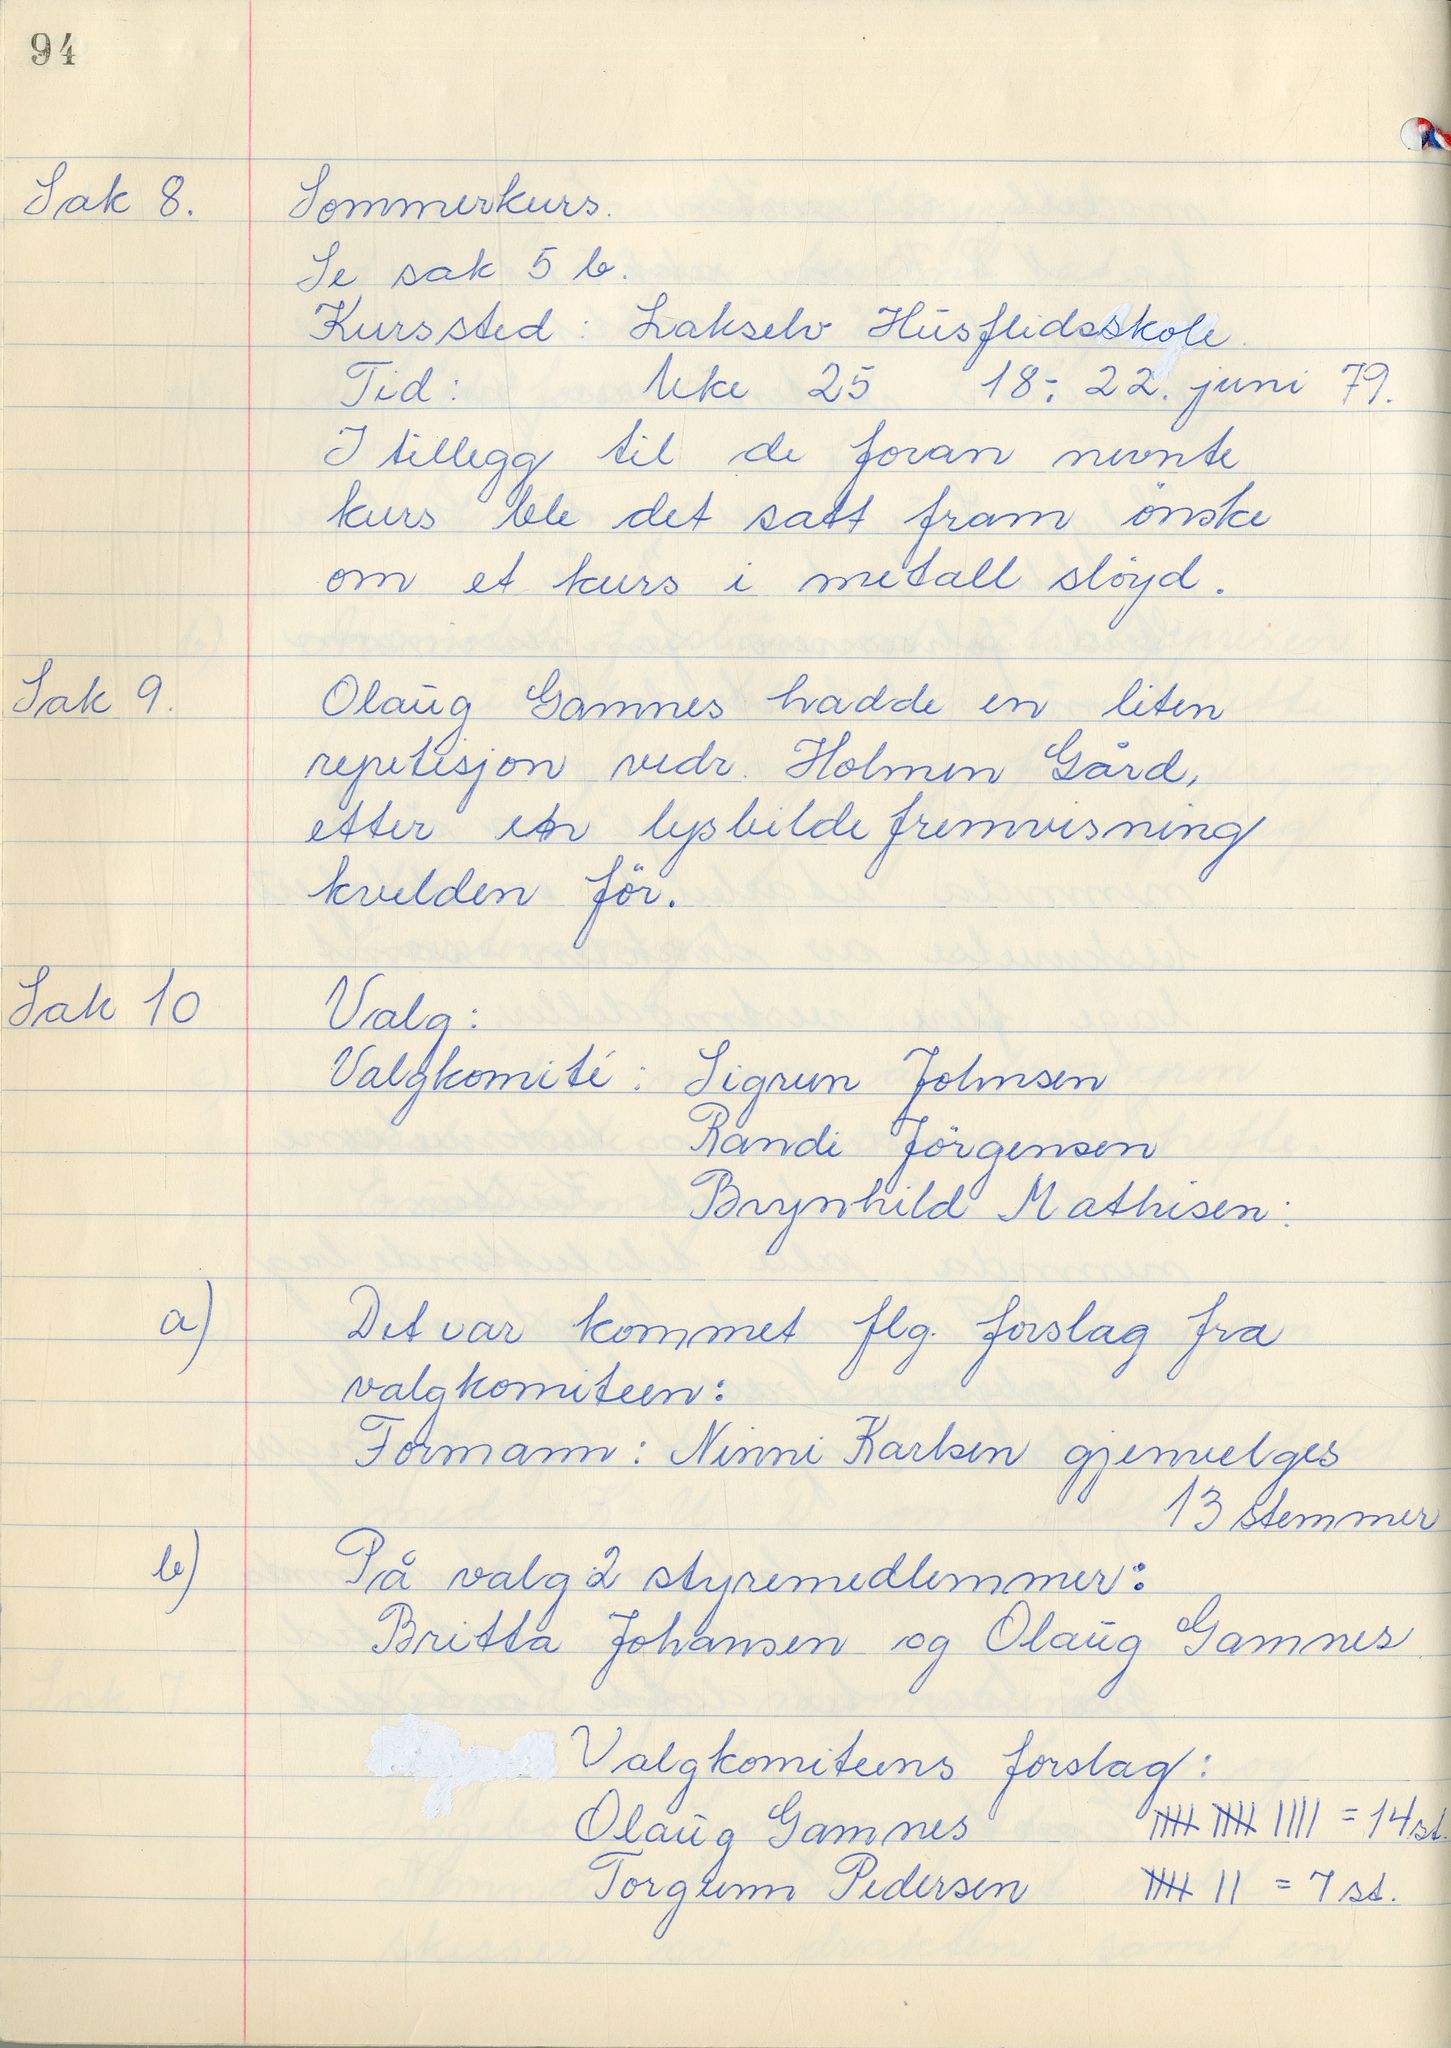 94
Sak 8. Sommerkurs.
Se sak 5 b.
Kurssted: Lakselv Husflidsskole.
Tid: Uke 25 18.- 22. juni 79.
I tillegg til de foran nevnte
kurs ble det satt fram önske
om et kurs i metall slöyd.
Sak 9. Olaug Gamnes hadde en liten
repetisjon vedr. Holmen Gård,
etter en lysbilde fremvisning
kvelden för.
Sak 10 Valg:
Valgkomité: Sigrun Johnsen
Randi Jörgensen
Brynhild Mathisen:
a) Det var kommet flg. forslag fra
valgkomiteen:
Formann: Ninni Karlsen gjenvelges
13 stemmer
b) På valg 2 styremedlemmer:
Britta Johansen og Olaug Gamnes
Valgkomiteens forslag:
Olaug Gamnes = 14 st.
Torgunn Pedersen = 7 st.